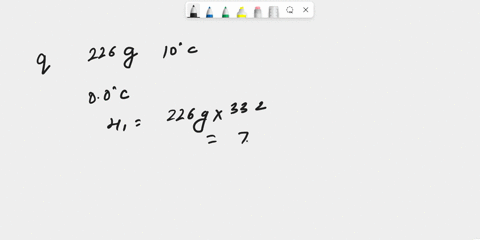 q 226g 10°C
0.0°C
H₁ = 226g × 332
= 7.